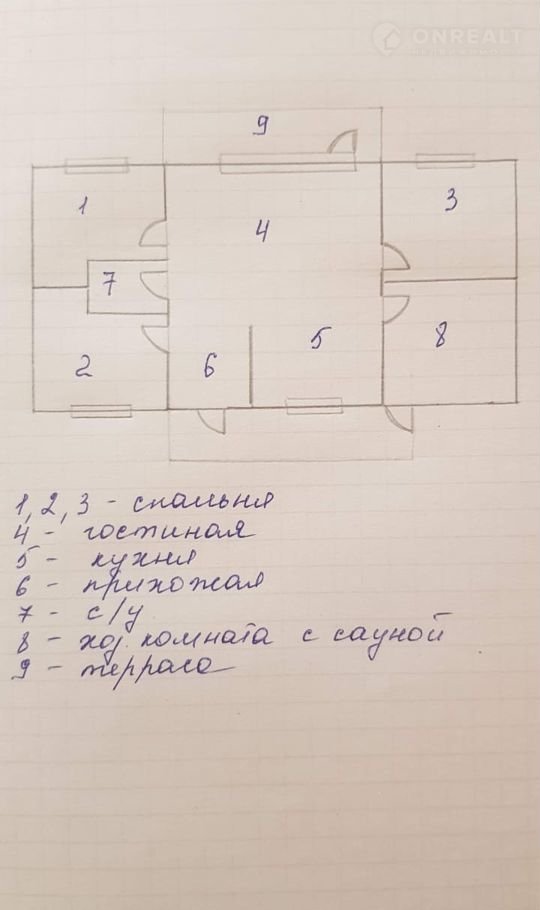 ONREALT
НЕДВИЖИМОСТЬ
9
1
3
4
7
2
6
5
8
1, 2, 3 - спальня
4 - гостиная
5 - кухня
6 - прихожая
7 - с/у
8 - хоз. комната с сауной
9 - терраса